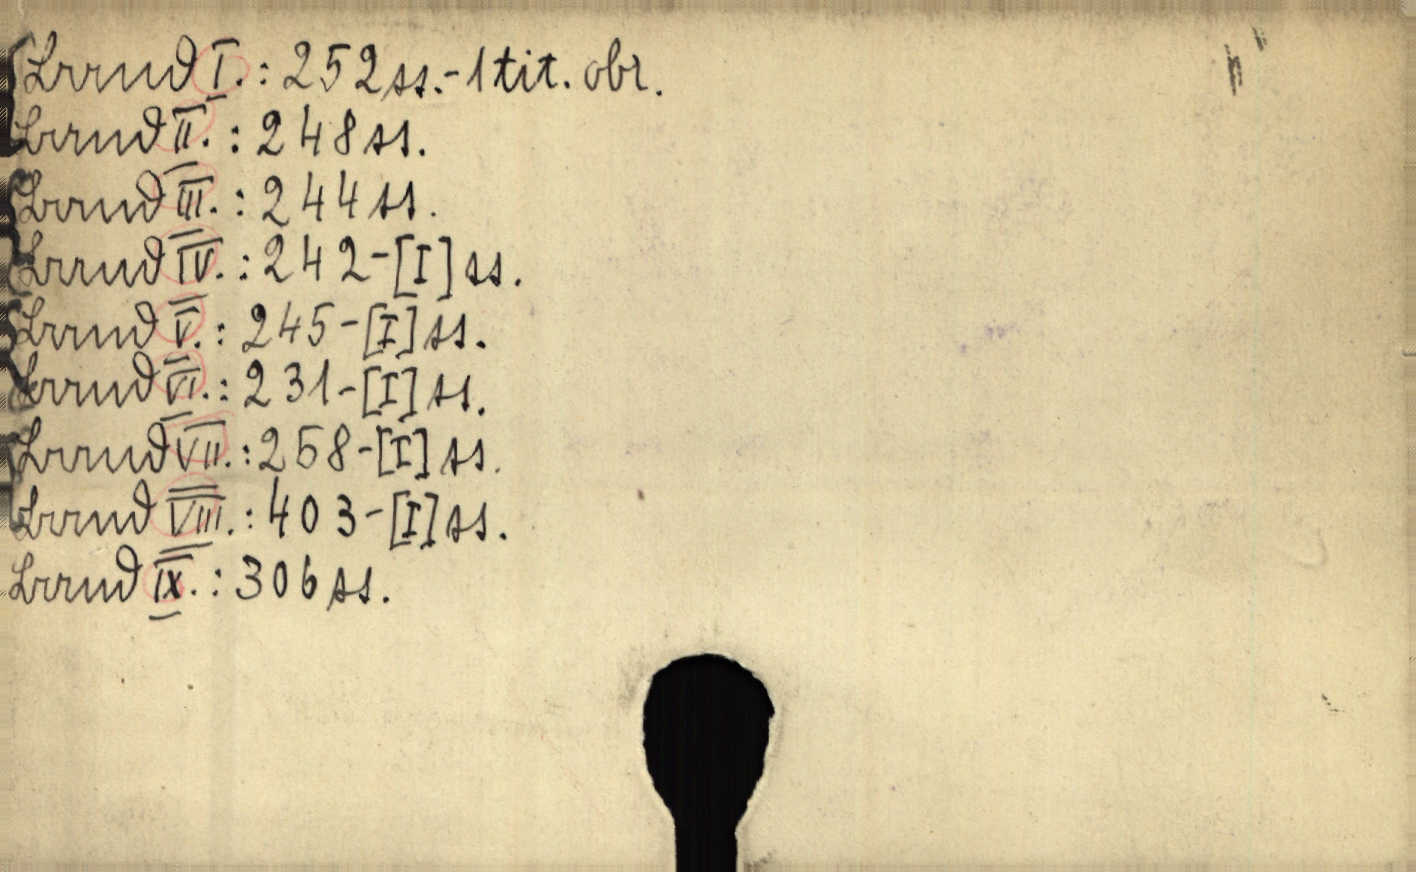 Band I.: 252 ss. - 1 tit. obr.
Band II.: 248 ss.
Band III.: 244 ss.
Band IV.: 242 - [I] ss.
Band V.: 245 - [I] ss.
Band VI.: 231 - [I] ss.
Band VII.: 258 - [I] ss.
Band VIII.: 403 - [I] ss.
Band IX.: 306 ss.